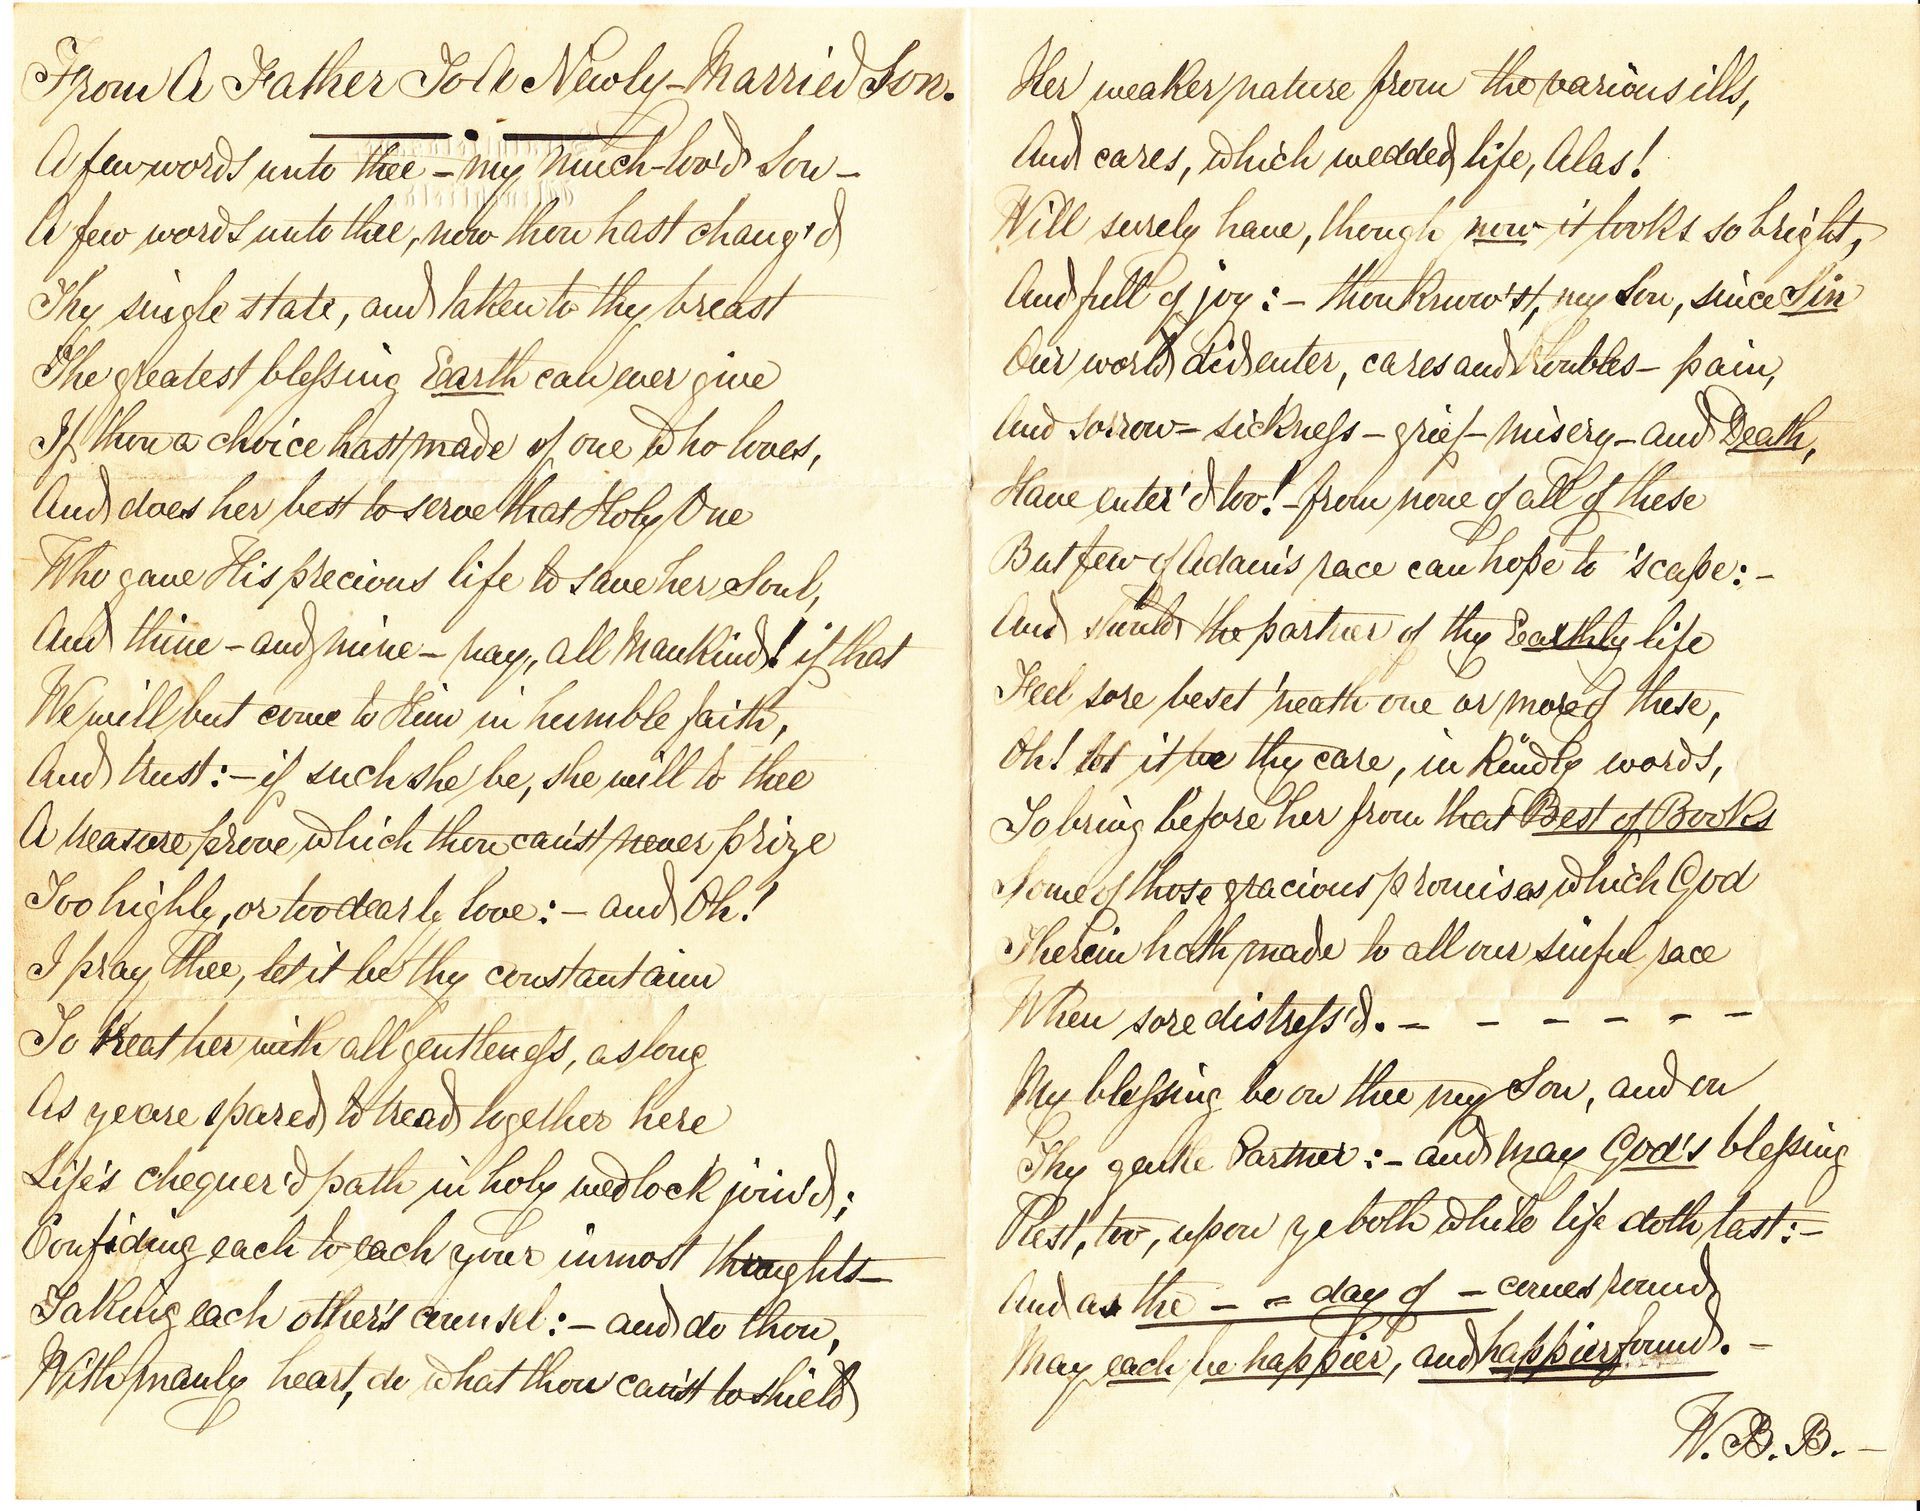 From A Father To A Newly-Married Son.
A few words unto thee - my much-lov'd Son -
A few words unto thee, now thou hast chang'd
Thy single state, and taken to thy breast
The greatest blessing Earth can ever give
If thou a choice hast made of one who loves,
And does her best to serve that Holy One
Who gave His precious life to save her Soul,
And thine - and mine - nay, all Mankind! if that
We will but come to Him in humble faith,
And trust: - if such she be, she will to thee
A treasure prove, which thou can'st never prize
Too highly, or too dearly love: - and Oh!
I pray thee, let it be thy constant aim
To treat her with all gentleness, as long
As ye are spared to tread together here
Life's chequer'd path in holy wedlock join'd;
Confiding each to each your inmost thoughts -
Taking each other's counsel: - and do thou,
With manly heart, do what thou can'st to shield
Her weaker nature from the various ills,
And cares, which wedded life, Alas!
Will surely have, though now it looks so bright,
And full of joy: - thou know'st, my Son, since Sin
Our world did enter, cares and troubles - pain,
And sorrow - sickness - grief - misery - and Death,
Have enter'd too! - from none of all of these
But few of Adam's race can hope to 'scape: -
And should the partner of thy Earthly life
Feel sore beset 'neath one or more of these,
Oh! let it be thy care, in kindly words,
To bring before her from that Best of Books
Some of those gracious promises which God
Therein hath made to all our sinful race
When sore distress'd. - - - - - -
My blessing be on thee my Son, and on
Thy gentle Partner: - and may God's blessing
Rest, too, upon ye both while life doth last: -
And as the - - day of - comes round,
May each be happier, and happier found. -
W. B. B. -